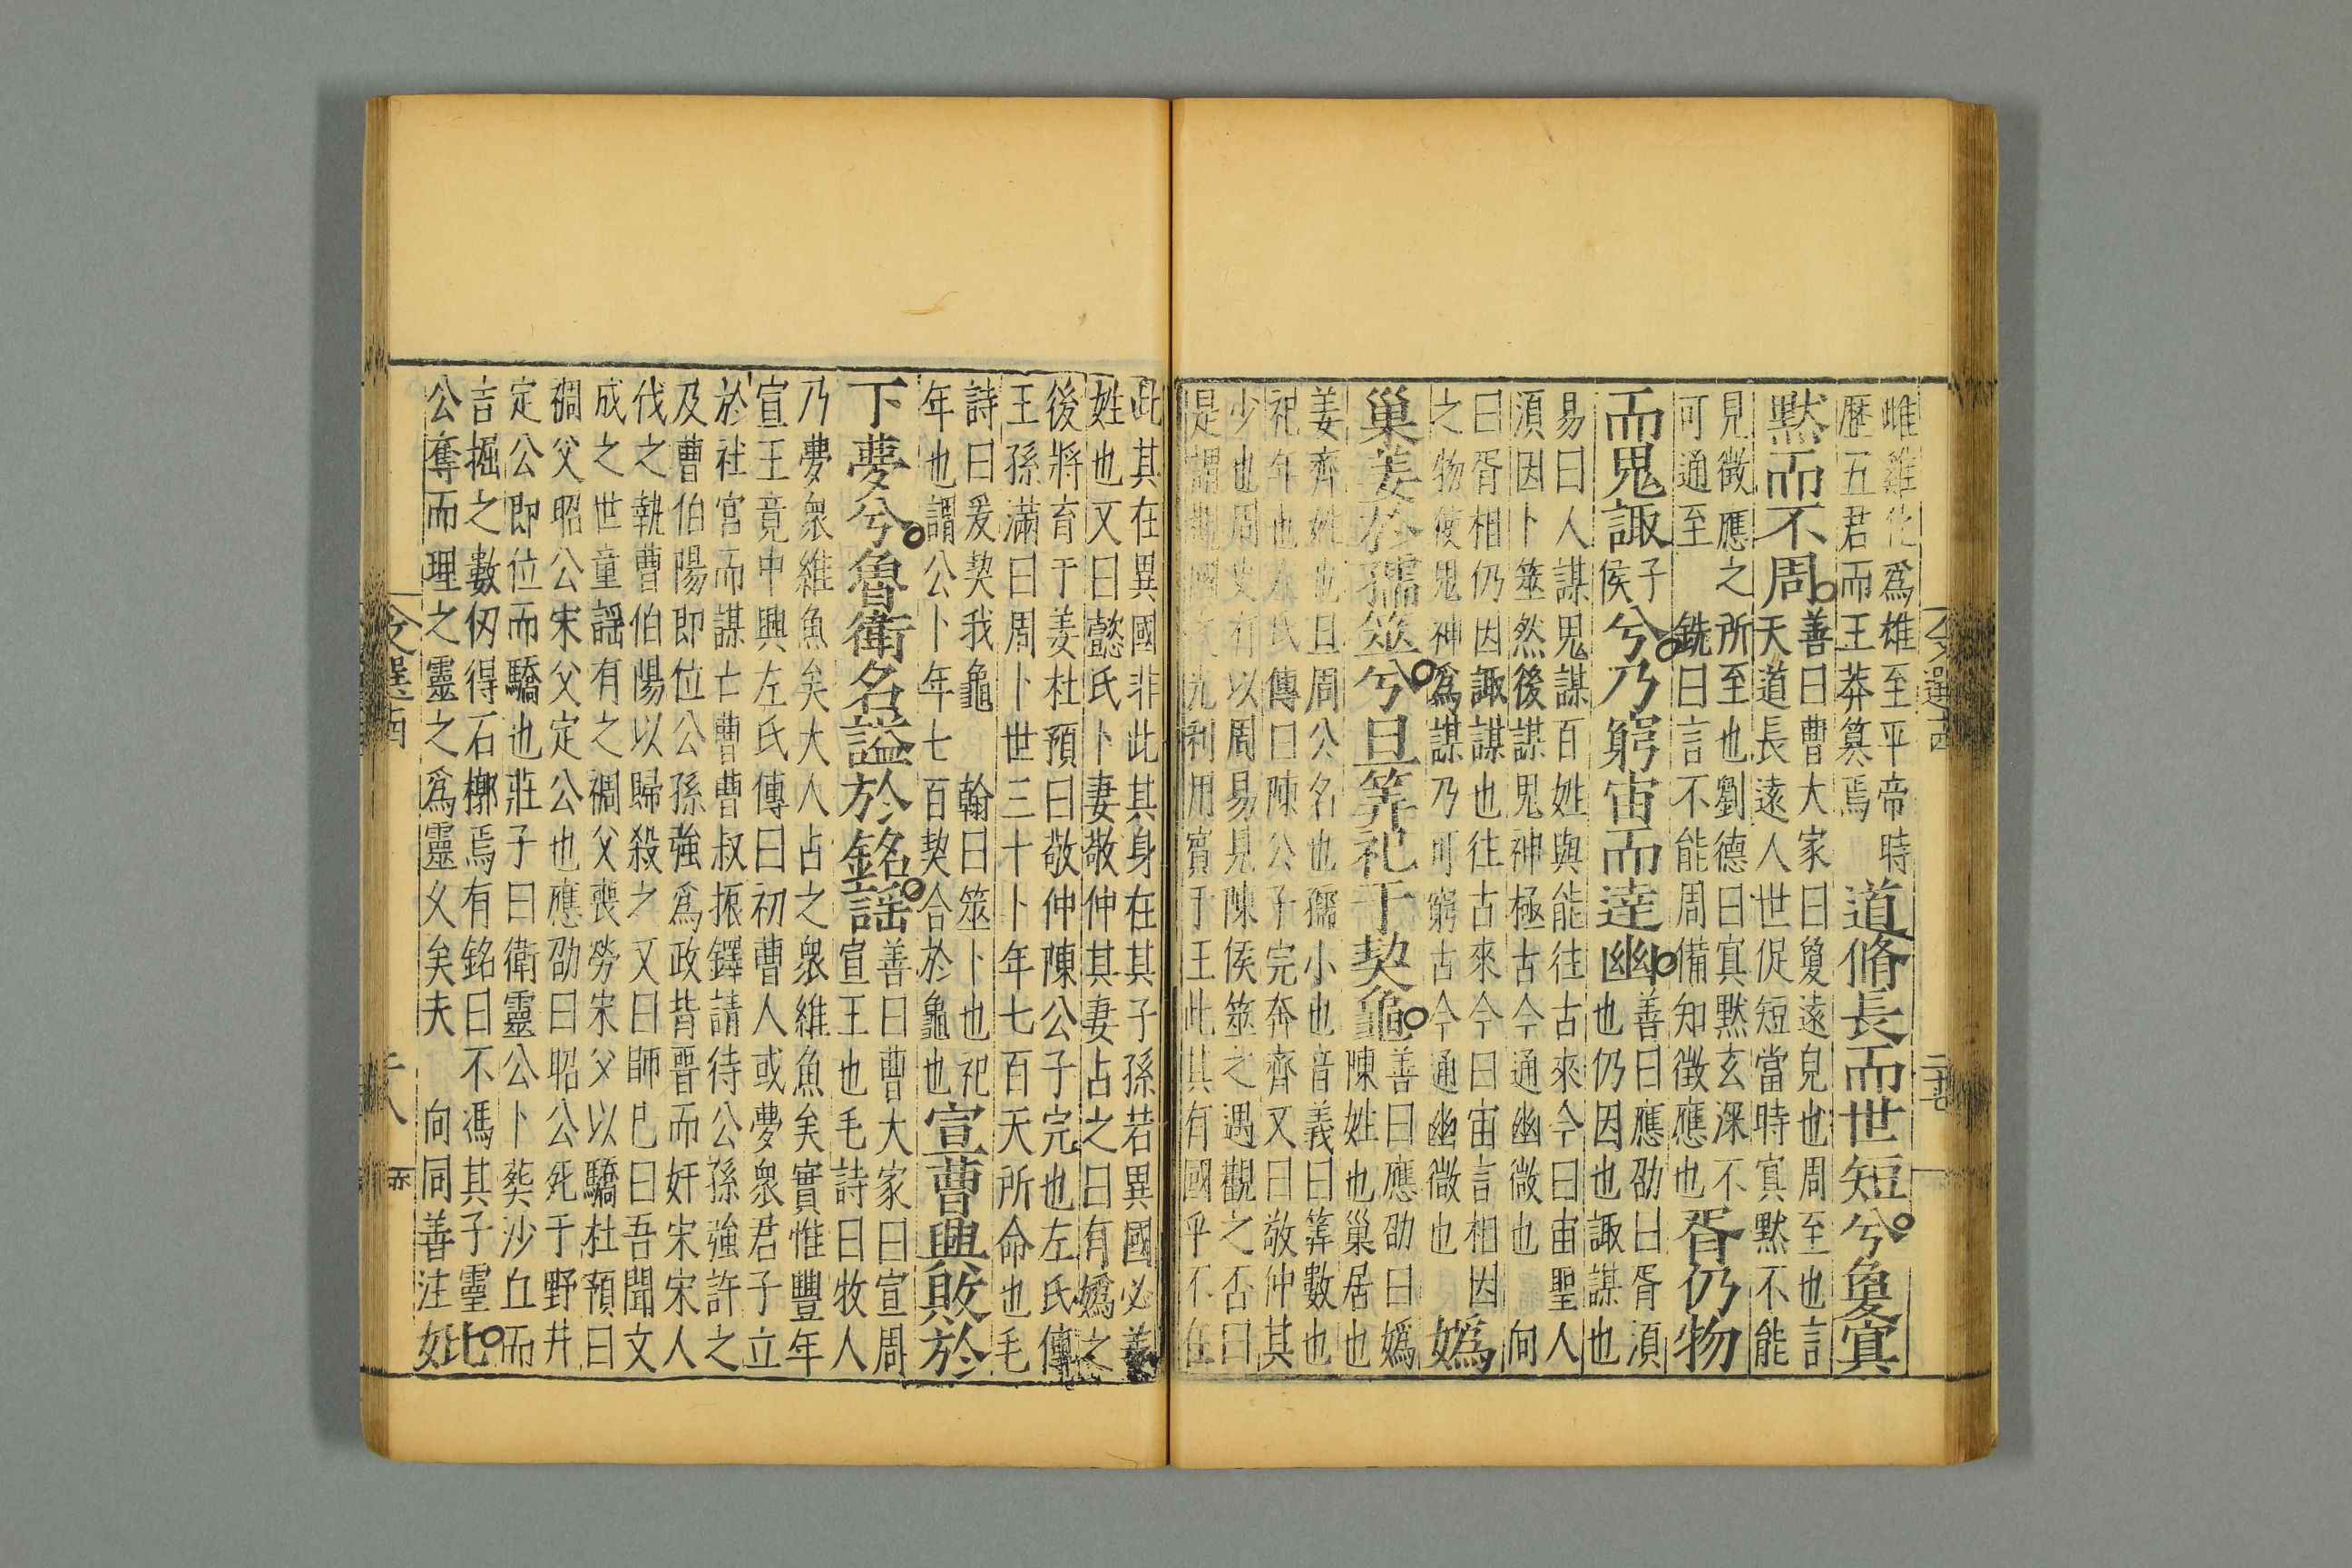 雌雞化爲雄至平帝時
歷五君而王莽篡焉
道脩長而世短兮夐㝠
默而不周
善曰曹大家曰夐遠皃也周至也言
天道長遠人世促短當時㝠默不能
見徵應之所至也劉德曰㝠默玄深不
可通至 銑曰言不能周備知徵應也
胥仍物
而鬼諏
子
侯
兮乃窮宙而達幽
善曰應劭曰胥須
也仍因也諏謀也
易曰人謀鬼謀百姓與能往古來今曰宙聖人
須因卜筮然後謀鬼神極古今通幽微也 向
曰胥相仍因諏謀也往古來今曰宙言相因
之物使鬼神爲謀乃可窮古今通幽微也
嬀
巢姜於孺筮兮旦筭祀于契龜
善曰應劭曰嬀
陳姓也巢居也
姜齊姓也旦周公名也孺小也音義曰筭數也
祀年也左氏傳曰陳公子完奔齊又曰敬仲其
少也周史有以周易見陳侯筮之遇觀之否曰
是謂觀國之光利用賓于王此其有國乎不在
此其在異國非此其身在其子孫若異國必姜
姓也又曰懿氏卜妻敬仲其妻占之曰有嬀之
後將育于姜杜預曰敬仲陳公子完也左氏傳
王孫滿曰周卜世三十卜年七百天所命也毛
詩曰爰契我龜 翰曰筮卜也祀
年也謂公卜年七百契合於龜也
宣曹興敗於
下夢兮魯衛名謚於銘謡
善曰曹大家曰宣周
宣王也毛詩曰牧人
乃夢衆維魚矣大人占之衆維魚矣實惟豐年
宣王竟中興左氏傳曰初曹人或夢衆君子立
於社宮而謀亡曹曹叔振鐸請待公孫強許之
及曹伯陽即位公孫強爲政背晋而奸宋宋人
伐之執曹伯陽以歸殺之又曰師巳曰吾聞文
成之世童謡有之禂父喪勞宋父以驕杜預曰
禂父昭公宋父定公也應劭曰昭公死于野井
定公即位而驕也莊子曰衛靈公卜葬沙丘而
吉掘之數仞得石槨焉有銘曰不馮其子靈
公奪而理之靈之爲靈乆矣夫 向同善注
妣
文選十四